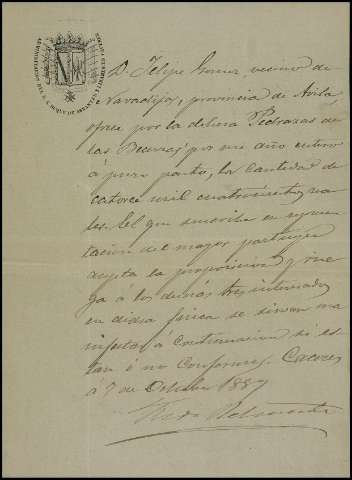 D. Felipe Gomez vecino de
Navadijos, provincia de Avila
ofrece por la dehesa Pedrazas de
las Becerras, por un año entero
á puro pasto, la cantidad de
catorce mil cuatrocientos rea-
les. El que suscribe en represen-
tacion del mayor partícipe
acepta la proposicion y rue-
ga á los demás tres interesados
en dicha finca se sirvan ma-
nifestar á continuacion si es-
tan ó no conformes. Caceres
á 7 de Octubre 1887